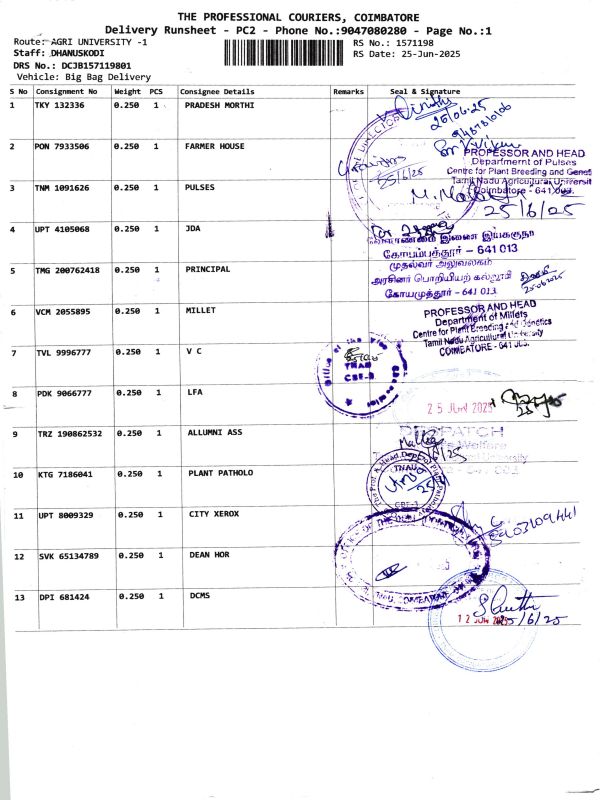 THE PROFESSIONAL COURIERS, COIMBATORE
Delivery Runsheet - PC2 - Phone No.:9047080280 - Page No.:1
Route: AGRI UNIVERSITY -1
Staff: DHANUSKODI
DRS No.: DCJB157119801
Vehicle: Big Bag Delivery
RS No.: 1571198
RS Date: 25-Jun-2025
S No Consignment No Weight PCS Consignee Details Remarks Seal & Signature
1 TKY 132336 0.250 1 PRADESH MORTHI
25/06/25
2 PON 7933506 0.250 1 FARMER HOUSE
PROFESSOR AND HEAD
Department of Pulses
Centre for Plant Breeding and Geneti
Tamil Nadu Agricultural Universit
Coimbatore - 641 003.
25/6/25
3 TNM 1091626 0.250 1 PULSES
4 UPT 4105068 0.250 1 JDA
வளாகம் இணை இயக்குநர்
கோயம்பத்தூர் – 641 013
5 TMG 200762418 0.250 1 PRINCIPAL
முதல்வர் அலுவலகம்
அரசினர் பொறியியற் கல்லூரி
கோயமுத்தூர் - 641 013.
25.06.2025
6 VCM 2055895 0.250 1 MILLET
PROFESSOR AND HEAD
Department of Millets
Centre for Plant Breeding and Genetics
Tamil Nadu Agricultural University
COIMBATORE - 641 003.
7 TVL 9996777 0.250 1 V C
Office of the Vice Chancellor
TNAU
CBE-3
8 PDK 9066777 0.250 1 LFA
25 JUN 2025
9 TRZ 190862532 0.250 1 ALLUMNI ASS
Welfare
University
10 KTG 7186041 0.250 1 PLANT PATHOLO
The Prof. & Head, Dept. of Plant Pathology
TNAU
CBE-3
11 UPT 8009329 0.250 1 CITY XEROX
12 SVK 65134789 0.250 1 DEAN HOR
OFFICE OF THE DEAN
13 DPI 681424 0.250 1 DCMS
12 JUN 2025
25/6/25